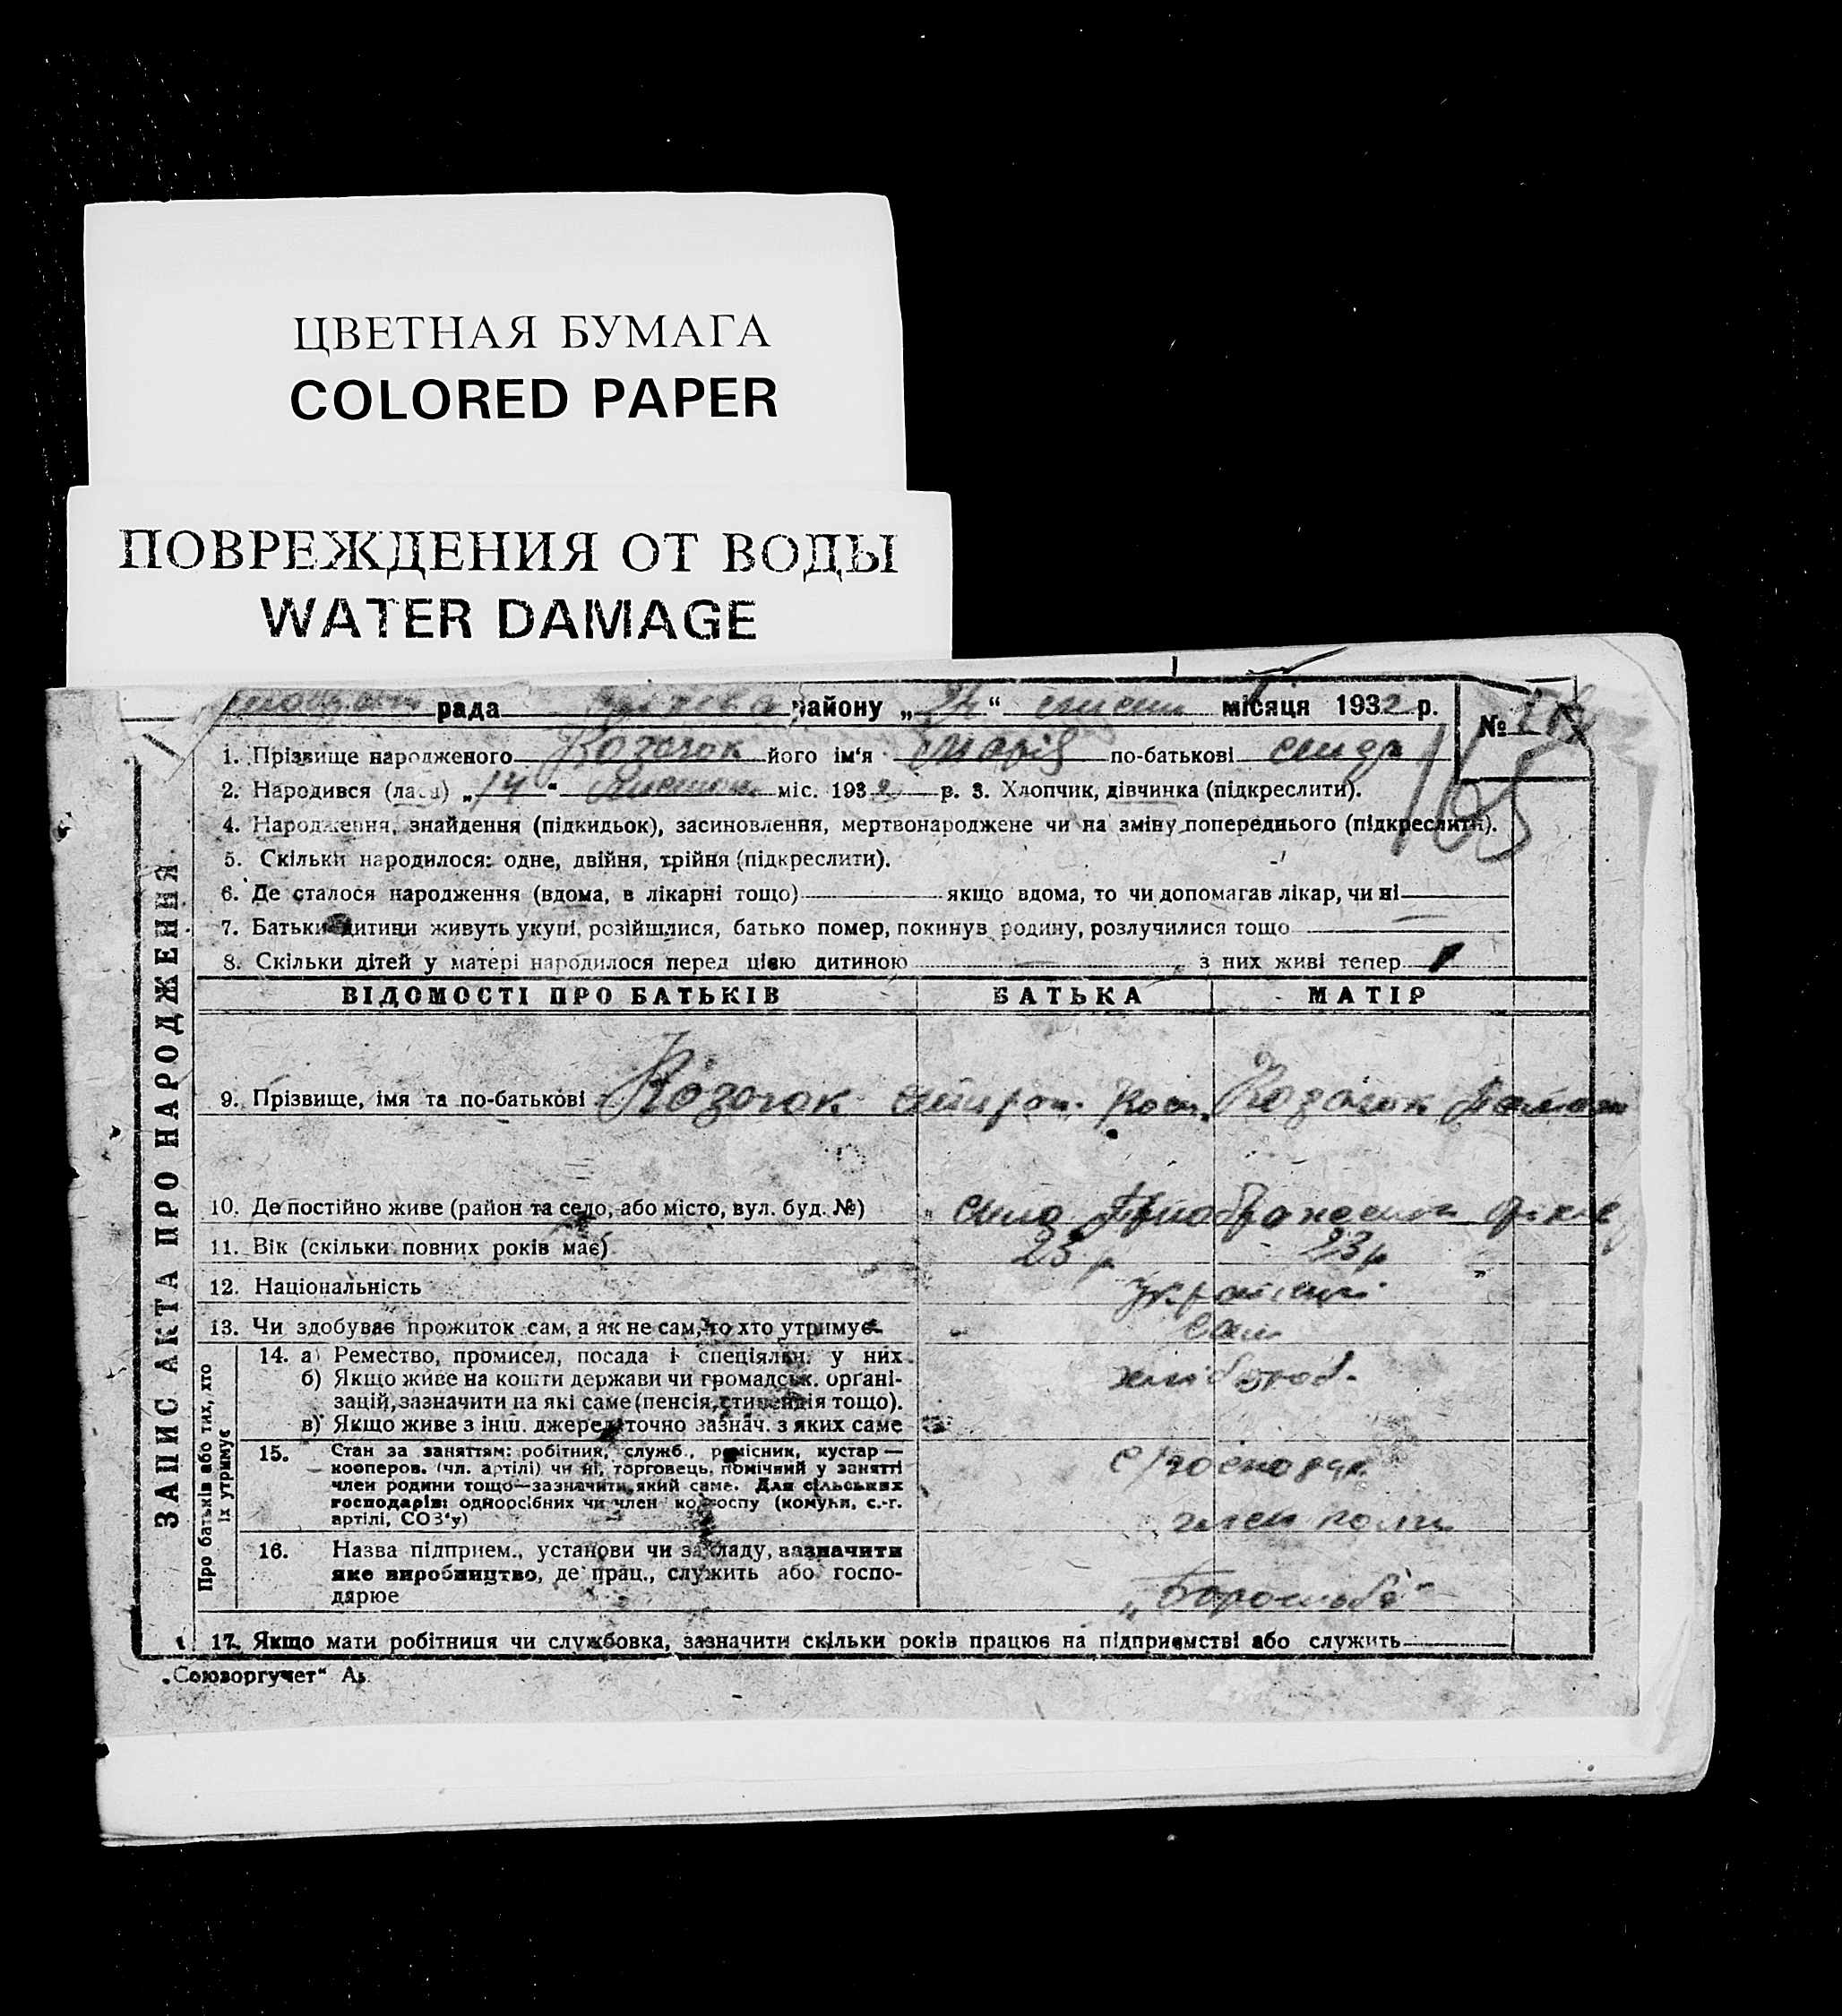 ЦВЕТНАЯ БУМАГА
COLORED PAPER
ПОВРЕЖДЕНИЯ ОТ ВОДЫ
WATER DAMAGE
рада району „24“ місяця 1932 р. №
1. Прізвище народженого Козачок його ім‘я Марія по-батькові
2. Народився (лася) „14“ міс. 1932 р. 3. Хлопчик, дівчинка (підкреслити).
105
4. Народження, знайдення (підкидьок), засиновлення, мертвонароджене чи на зміну попереднього (підкреслити).
5. Скільки народилося: одне, двійня, трійня (підкреслити).
6. Де сталося народження (вдома, в лікарні тощо) якщо вдома, то чи допомагав лікар, чи ні
7. Батьки дитини живуть укупі, розійшлися, батько помер, покинув родину, розлучилися тощо
8. Скільки дітей у матері народилося перед цією дитиною з них живі тепер
ЗАПИС АКТА ПРО НАРОДЖЕННЯ
ВІДОМОСТІ ПРО БАТЬКІВ БАТЬКА МАТІР
9. Прізвище, імя та по-батькові Козачок Козачок
10. Де постійно живе (район та село, або місто, вул. буд. №) село
11. Вік (скільки повних років має) 25 р 23 р
12. Національність українці
13. Чи здобуває прожиток сам, а як не сам, то хто утримує сам
Про батьків або тих, хто
їх утримує
14. а) Ремество, промисел, посада і спеціяльн. у них
б) Якщо живе на кошти держави чи громадськ. органі-
зацій, зазначити на які саме (пенсія, стипендія тощо).
в) Якщо живе з інш. джерел точно зазнач. з яких саме
хлібороб.
15. Стан за заняттям: робітник, служб., ремісник, кустар —
кооперов. (чл. артілі) чи ні, торговець, помічний у занятті
член родини тощо—зазначити який саме. Для сільських
господарів: одноосібних чи член колгоспу (комуни, с.-г.
артілі, СОЗ‘у)
член
16. Назва підприєм., установи чи закладу, зазначити
яке виробництво, де прац., служить або госпо-
дарює
17. Якщо мати робітниця чи службовка, зазначити скільки років працює на підприємстві або служить
„Союзоргучет“